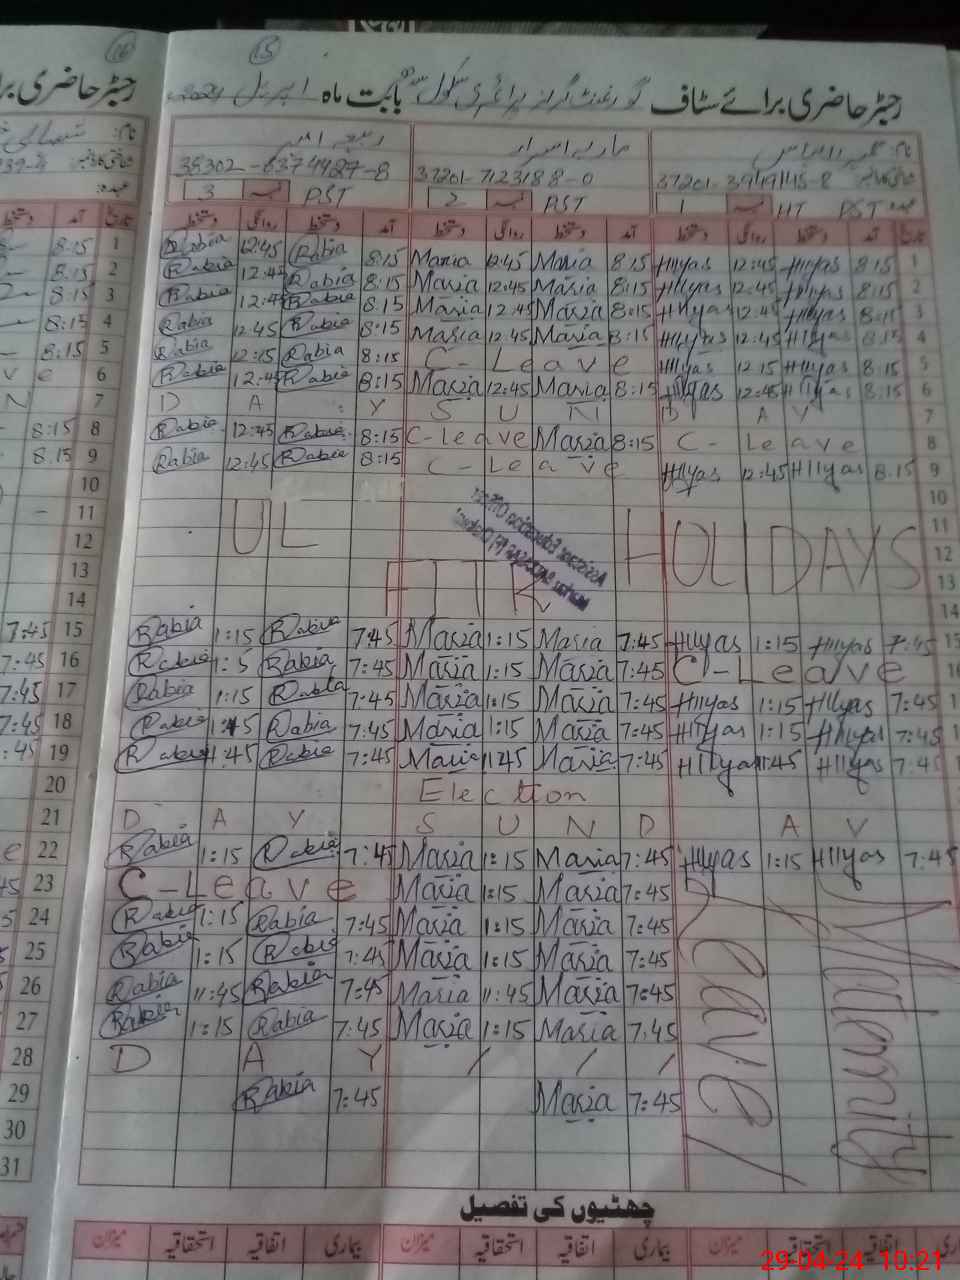 15
رجسٹر حاضری برائے سٹاف گورنمنٹ گرلز پرائمری سکول بابت ماہ اپریل 2024
نام: ماریہ اسرار ربیعہ
شناختی کارڈ نمبر 37201-3949145-8 37201-7123188-0 38302-6374427-8
عہدہ: PST HT نمبر 1 PST نمبر 2 PST نمبر 3
تاریخ آمد دستخط روانگی دستخط آمد دستخط روانگی دستخط آمد دستخط روانگی دستخط
1 8:15 Hllyas 12:45 Hllyas 8:15 Maria 12:45 Maria 8:15 Rabia 12:45 Rabia
2 8:15 Hllyas 12:45 Hllyas 8:15 Maria 12:45 Maria 8:15 Rabia 12:45 Rabia
3 8:15 Hllyas 12:45 Hllyas 8:15 Maria 12:45 Maria 8:15 Rabia 12:45 Rabia
4 8:15 Hllyas 12:45 Hllyas 8:15 Maria 12:45 Maria 8:15 Rabia 12:45 Rabia
5 8:15 Hllyas 12:15 Hllyas C-Leave 8:15 Rabia 12:15 Rabia
6 8:15 Hllyas 12:45 Hllyas 8:15 Maria 12:45 Maria 8:15 Rabia 12:45 Rabia
7 D A Y S U N D A Y
8 C-Leave 8:15 Maria C-Leave 8:15 Rabia 12:45 Rabia
9 8:15 Hllyas 12:45 Hllyas C-Leave 8:15 Rabia 12:45 Rabia
10
11
12 UL FITR HOLIDAYS
13
14
15 7:45 Hllyas 1:15 Hllyas 7:45 Maria 1:15 Maria 7:45 Rabia 1:15 Rabia
16 C-Leave 7:45 Maria 1:15 Maria 7:45 Rabia 1:5 Rabia
17 7:45 Hllyas 1:15 Hllyas 7:45 Maria 1:15 Maria 7:45 Rabia 1:15 Rabia
18 7:45 Hllyas 1:15 Hllyas 7:45 Maria 1:15 Maria 7:45 Rabia Rabia
19 7:45 Hllyas 11:45 Hllyas 7:45 Maria 11:45 Maria 7:45 Rabia 11:45 Rabia
20 Election
21 D A Y S U N D A Y
22 7:45 Hllyas 1:15 Hllyas 7:45 Maria 1:15 Maria 7:45 Rabia 1:15 Rabia
23 7:45 Maria 1:15 Maria C-Leave
24 7:45 Maria 1:15 Maria 7:45 Rabia 1:15 Rabia
25 7:45 Maria 1:15 Maria 7:45 Rabia 1:15 Rabia
26 7:45 Maria 11:45 Maria 7:45 Rabia 11:45 Rabia
27 7:45 Maria 1:15 Maria 7:45 Rabia 1:15 Rabia
28 D A Y
29 7:45 Maria 7:45 Rabia
30
31
Maternity Leave
چھٹیوں کی تفصیل
اتفاقیہ استحقاقیہ میزان بیماری اتفاقیہ استحقاقیہ میزان بیماری اتفاقیہ استحقاقیہ میزان
29-04-24 10:21